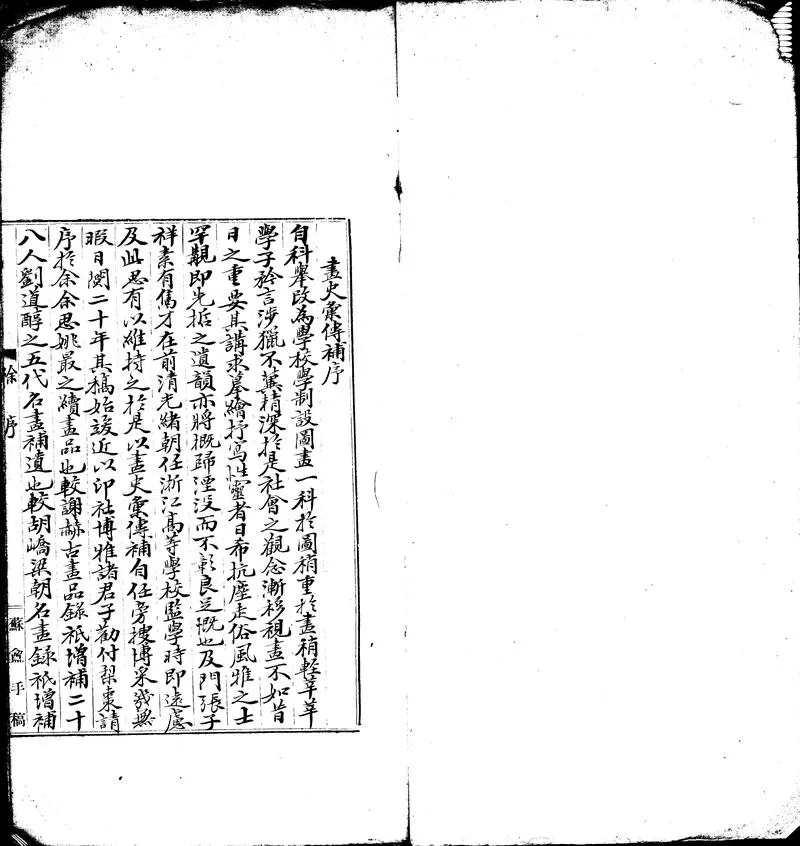 畫史彙傳補序
自科舉改為學校學制設圖畫一科於圖稍重於畫稍輕莘莘
學子矜言涉獵不冀精深於是社會之觀念漸移視畫不如昔
日之重要其講求摹繪抒寫性靈者日希抗塵走俗風雅之士
罕覯即先哲之遺韻亦將概歸湮沒而不彰良足慨也及門張子
祥素有雋才在前清光緒朝任浙江高等學校監學時即遠慮
及此思有以維持之於是以畫史彙傳補自任旁搜博采幾無
暇日閱二十年其稿始竣近以印社博雅諸君子勸付梨棗請
序於余余思姚最之續畫品也較謝赫古畫品錄祇增補二十
八人劉道醇之五代名畫補遺也較胡嶠梁朝名畫錄祇增補
徐序
蘇盦手稿